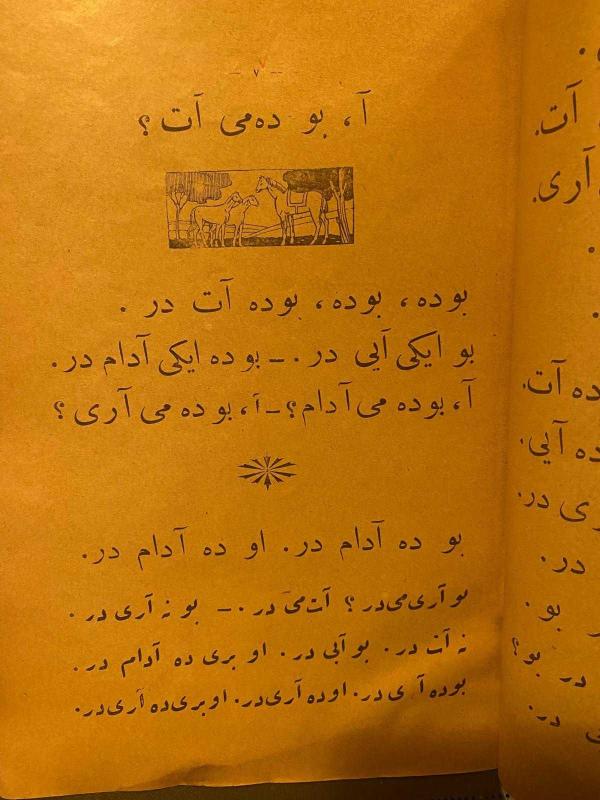 — ٧ —
آ، بو ده‌می آت ؟
بوده، بوده، بوده آت در .
بو ایکی آیی در .— بو ده ایکی آدام در.
آ، بو ده می آدام؟ — آ، بو ده می آری ؟
بو ده آدام در. او ده آدام در.
بو آری می در ؟ آت می در .— بو نه آری در .
نه آت در. بو آیی در. او بری ده آدام در.
بوده آری در. اوده آری در. اوبری ده آری در.
آت.
آری.
ده آت.
ده آیی.
ی در.
در.
بو.
در بو؟
ی در.